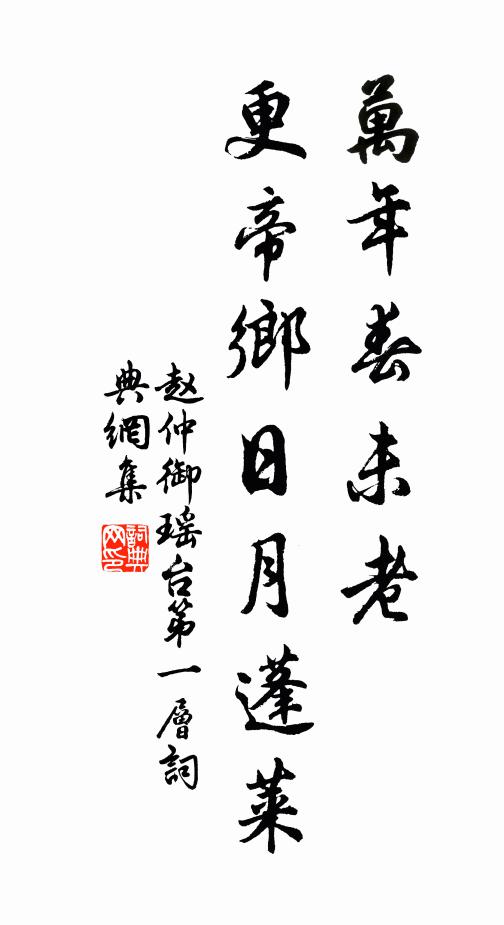 萬年春未老
更帝鄉日月蓬萊
赵仲御瑶台第一層詞
典網集
詞典網印